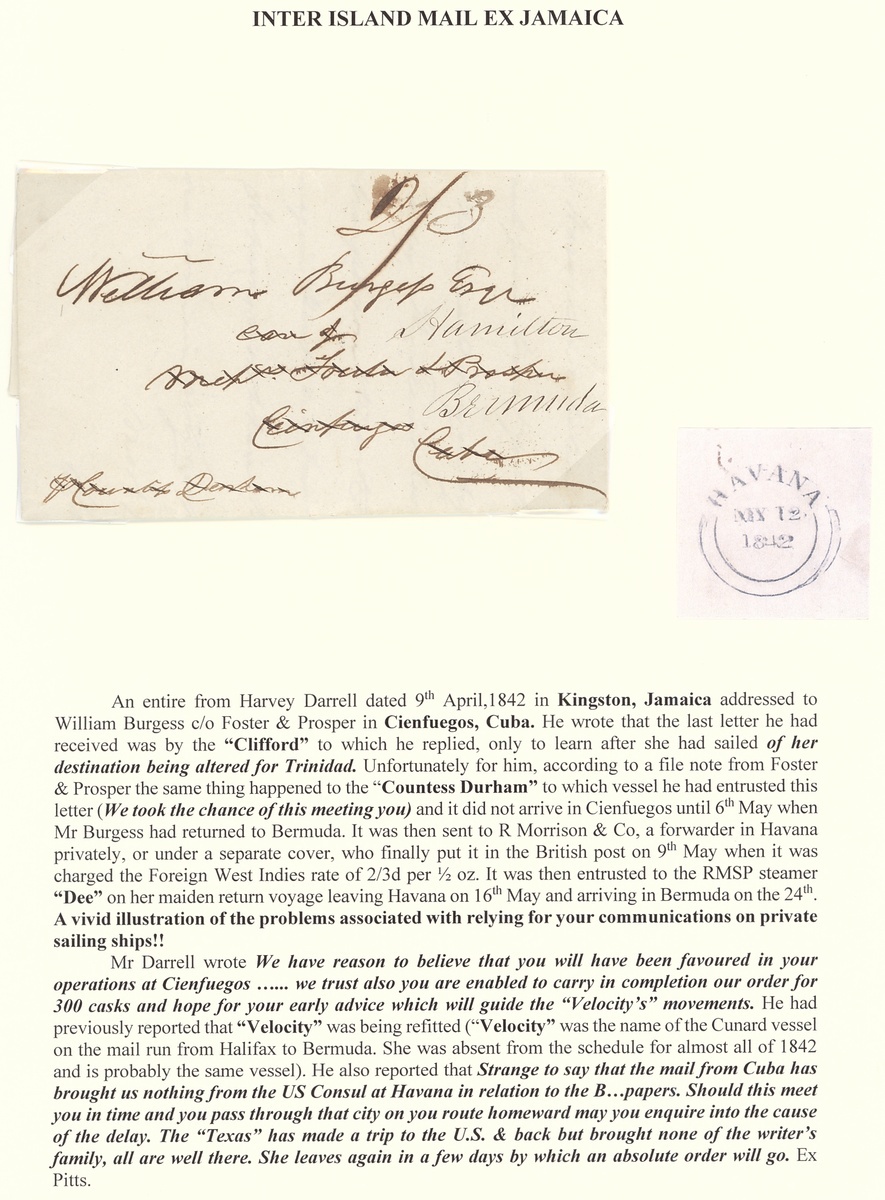 INTER ISLAND MAIL EX JAMAICA
2/3
William Burgess Esqr
care of Hamilton
Bermuda
Cienfuegos
Cuba
HAVANA
12
1842
An entire from Harvey Darrell dated 9th April,1842 in Kingston, Jamaica addressed to
William Burgess c/o Foster & Prosper in Cienfuegos, Cuba. He wrote that the last letter he had
received was by the “Clifford” to which he replied, only to learn after she had sailed of her
destination being altered for Trinidad. Unfortunately for him, according to a file note from Foster
& Prosper the same thing happened to the “Countess Durham” to which vessel he had entrusted this
letter (We took the chance of this meeting you) and it did not arrive in Cienfuegos until 6th May when
Mr Burgess had returned to Bermuda. It was then sent to R Morrison & Co, a forwarder in Havana
privately, or under a separate cover, who finally put it in the British post on 9th May when it was
charged the Foreign West Indies rate of 2/3d per ½ oz. It was then entrusted to the RMSP steamer
“Dee” on her maiden return voyage leaving Havana on 16th May and arriving in Bermuda on the 24th.
A vivid illustration of the problems associated with relying for your communications on private
sailing ships!!
Mr Darrell wrote We have reason to believe that you will have been favoured in your
operations at Cienfuegos …... we trust also you are enabled to carry in completion our order for
300 casks and hope for your early advice which will guide the “Velocity’s” movements. He had
previously reported that “Velocity” was being refitted (“Velocity” was the name of the Cunard vessel
on the mail run from Halifax to Bermuda. She was absent from the schedule for almost all of 1842
and is probably the same vessel). He also reported that Strange to say that the mail from Cuba has
brought us nothing from the US Consul at Havana in relation to the B…papers. Should this meet
you in time and you pass through that city on you route homeward may you enquire into the cause
of the delay. The “Texas” has made a trip to the U.S. & back but brought none of the writer’s
family, all are well there. She leaves again in a few days by which an absolute order will go. Ex
Pitts.